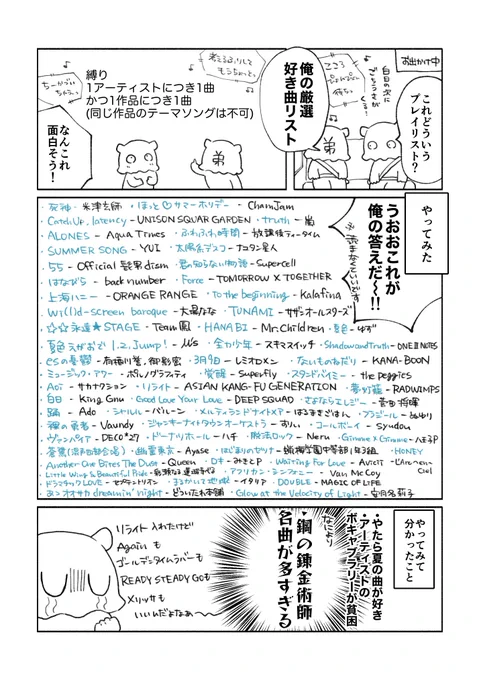 お出かけ中
これどういう
プレイリスト？
俺の厳選
好き曲リスト
弟
縛り
1アーティストにつき1曲
かつ1作品につき1曲
(同じ作品のテーマソングは不可)
なんこれ
面白そう！
やってみた
うおおこれが
俺の答えだ〜!!
・死神-米津玄師 ・ほっと♡サマーホリデー - ChamJam
・Catch Up, latency - UNISON SQUAR GARDEN ・truth - 嵐
・ALONES - Aqua Timez ・ふわふわ時間 - 放課後ティータイム
・SUMMER SONG - YUI ・太陽系デスコ - ナユタン星人
・55 - Official髭男dism ・君の知らない物語 - Supercell
・はなびら - back number ・Force - TOMORROW X TOGETHER
・上海ハニー - ORANGE RANGE ・To the beginning - Kalafina
・Wi(l)d-screen baroque - 大場なな ・TUNAMI - サザンオールスターズ
・☆☆永遠★STAGE - Team鳳 ・HANABI - Mr.Children ・夏色 - ゆず
・夏色えがおで1,2,Jump! - μ's ・全力少年 - スキマスイッチ ・Shadow and truth - ONE III NOTES
・esの憂鬱 - 有栖川誉、御影密 ・3月9日 - レミオロメン ・ないものねだり - KANA-BOON
・ミュージック・アワー - ポルノグラフィティ ・覚醒 - Superfly ・スタンドバイミー - the peggies
・Aoi - サカナクション ・リライト - ASIAN KANG-FU GENERATION ・夢灯籠 - RADWIMPS
・白日 - King Gnu ・Good Love Your Love - DEEP SQUAD ・さよならエレジー - 菅田将暉
・踊 - Ado ・シャルル - バルーン ・メルティランドナイトメア - はるまきごはん ・フラジール - ぬゆり
・裸の勇者 - Vaundy ・ジャンキーナイトタウンオーケストラ - すりぃ ・コールボーイ - syudou
・ヴァンパイア - DECO*27 ・ドーナツホール - ハチ ・脱法ロック - Neru ・Gimme×Gimme - 八王子P
・幽霊東京 - Ayase ・はじまりのセツナ - 蝋梅学園中等部1年3組 ・HONEY
・Another One Bites The Dust - Queen ・ロキ - みきとP ・Waiting For Love - Avicii - L'Arc~en~Ciel
・アフリカン・シンフォニー - Van McCoy
・まるかいて地球 - イタリア ・DOUBLE - MAGIC OF LIFE
dreamin' night - どついたれ本舗 ・Glow at the Velocity of Light - 安月名莉子
やってみて
分かったこと
・やたら夏の曲が好き
・アーティストの
ボキャブラリーが貧困
なにより
・鋼の錬金術師
名曲が多すぎる
リライト入れたけど
Againも
ゴールデンタイムラバーも
READY STEADY GOも
メリッサも
いいんだよなぁ〜